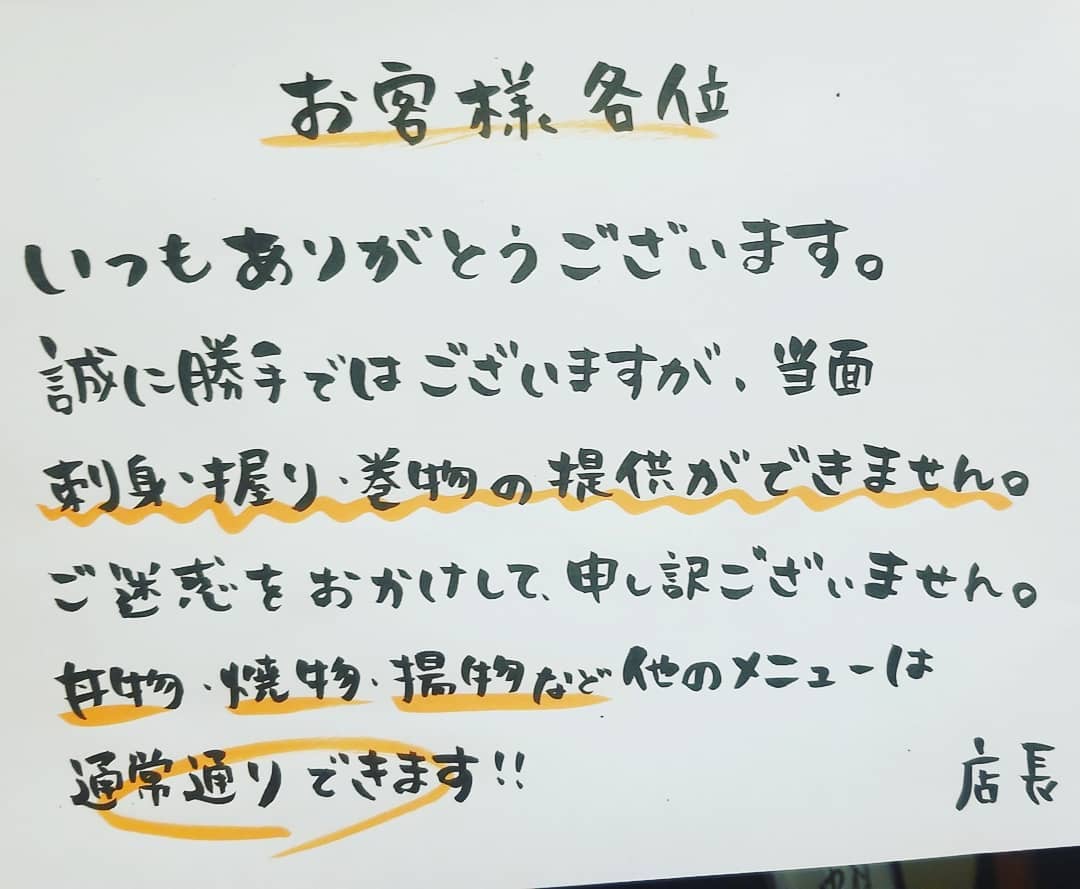 お客様各位
いつもありがとうございます。
誠に勝手ではございますが、当面
刺身・握り・巻物の提供ができません。
ご迷惑をおかけして、申し訳ございません。
丼物・焼物・揚物など他のメニューは
通常通りできます!!
店長